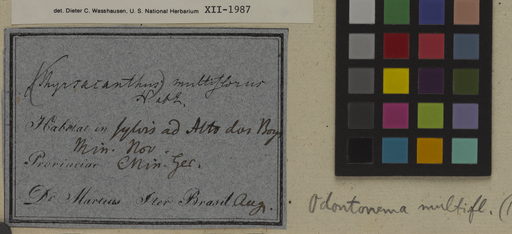 det. Dieter C. Wasshausen, U. S. National Herbarium XII-1987
(Thyrsacanthus) multiflorus
N ab E.
Habitat in sylvis ad Alto dos Boy
Min. Nov.
Provinciae Min. Ger.
Dr Martius Iter Brasil Aug.
Odontonema multifl. (